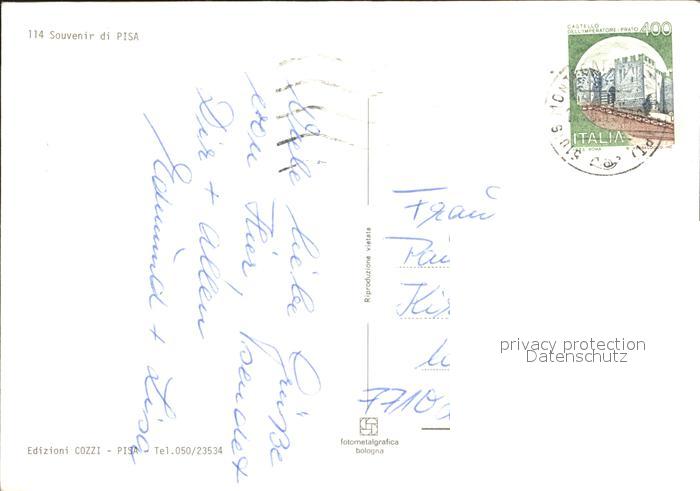 114 Souvenir di PISA
CASTELLO
DELL'IMPERATORE-PRATO
400
ITALIA
Viele liebe Grüße
von Hier, sendet
Dir + Allen
Edmund + Lisa
Frau
Reproduzione vietata
privacy protection
Datenschutz
Edizioni COZZI - PISA - Tel.050/23534
fotometalgrafica
bologna